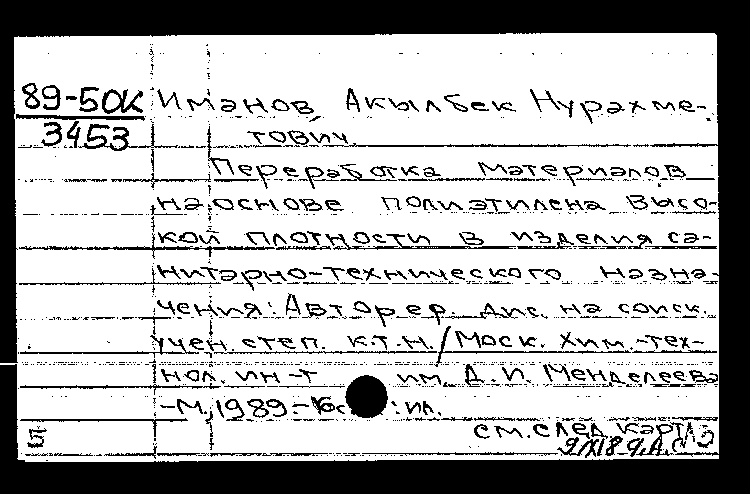 89-50К Иманов, Акылбек Нурахме-
3453 тович.
Переработка материалов
на основе полиэтилена высо-
кой плотности в изделия са-
нитарно-технического назна-
чения: Автореф. дис. на соиск.
учен. степ. к.т.н. / Моск. хим.-тех-
нол. ин-т им. Д. И. Менделеева
-М., 1989.-16с : ил.
см. след. карт